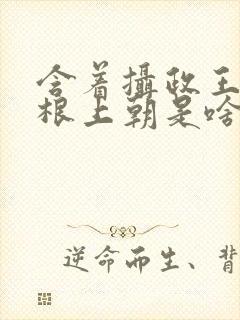 含着攝政王
根上朝是啥
逆命而生、背